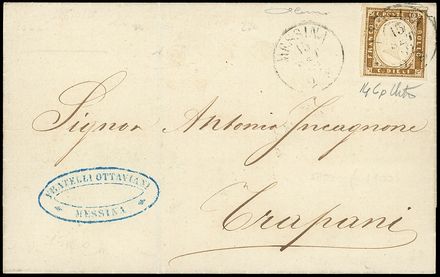 MESSINA
15
FRANCO
POSTE
C. DIECI
15
Signor Antonio Incagnone
FRATELLI OTTAVIANI
MESSINA
Trapani